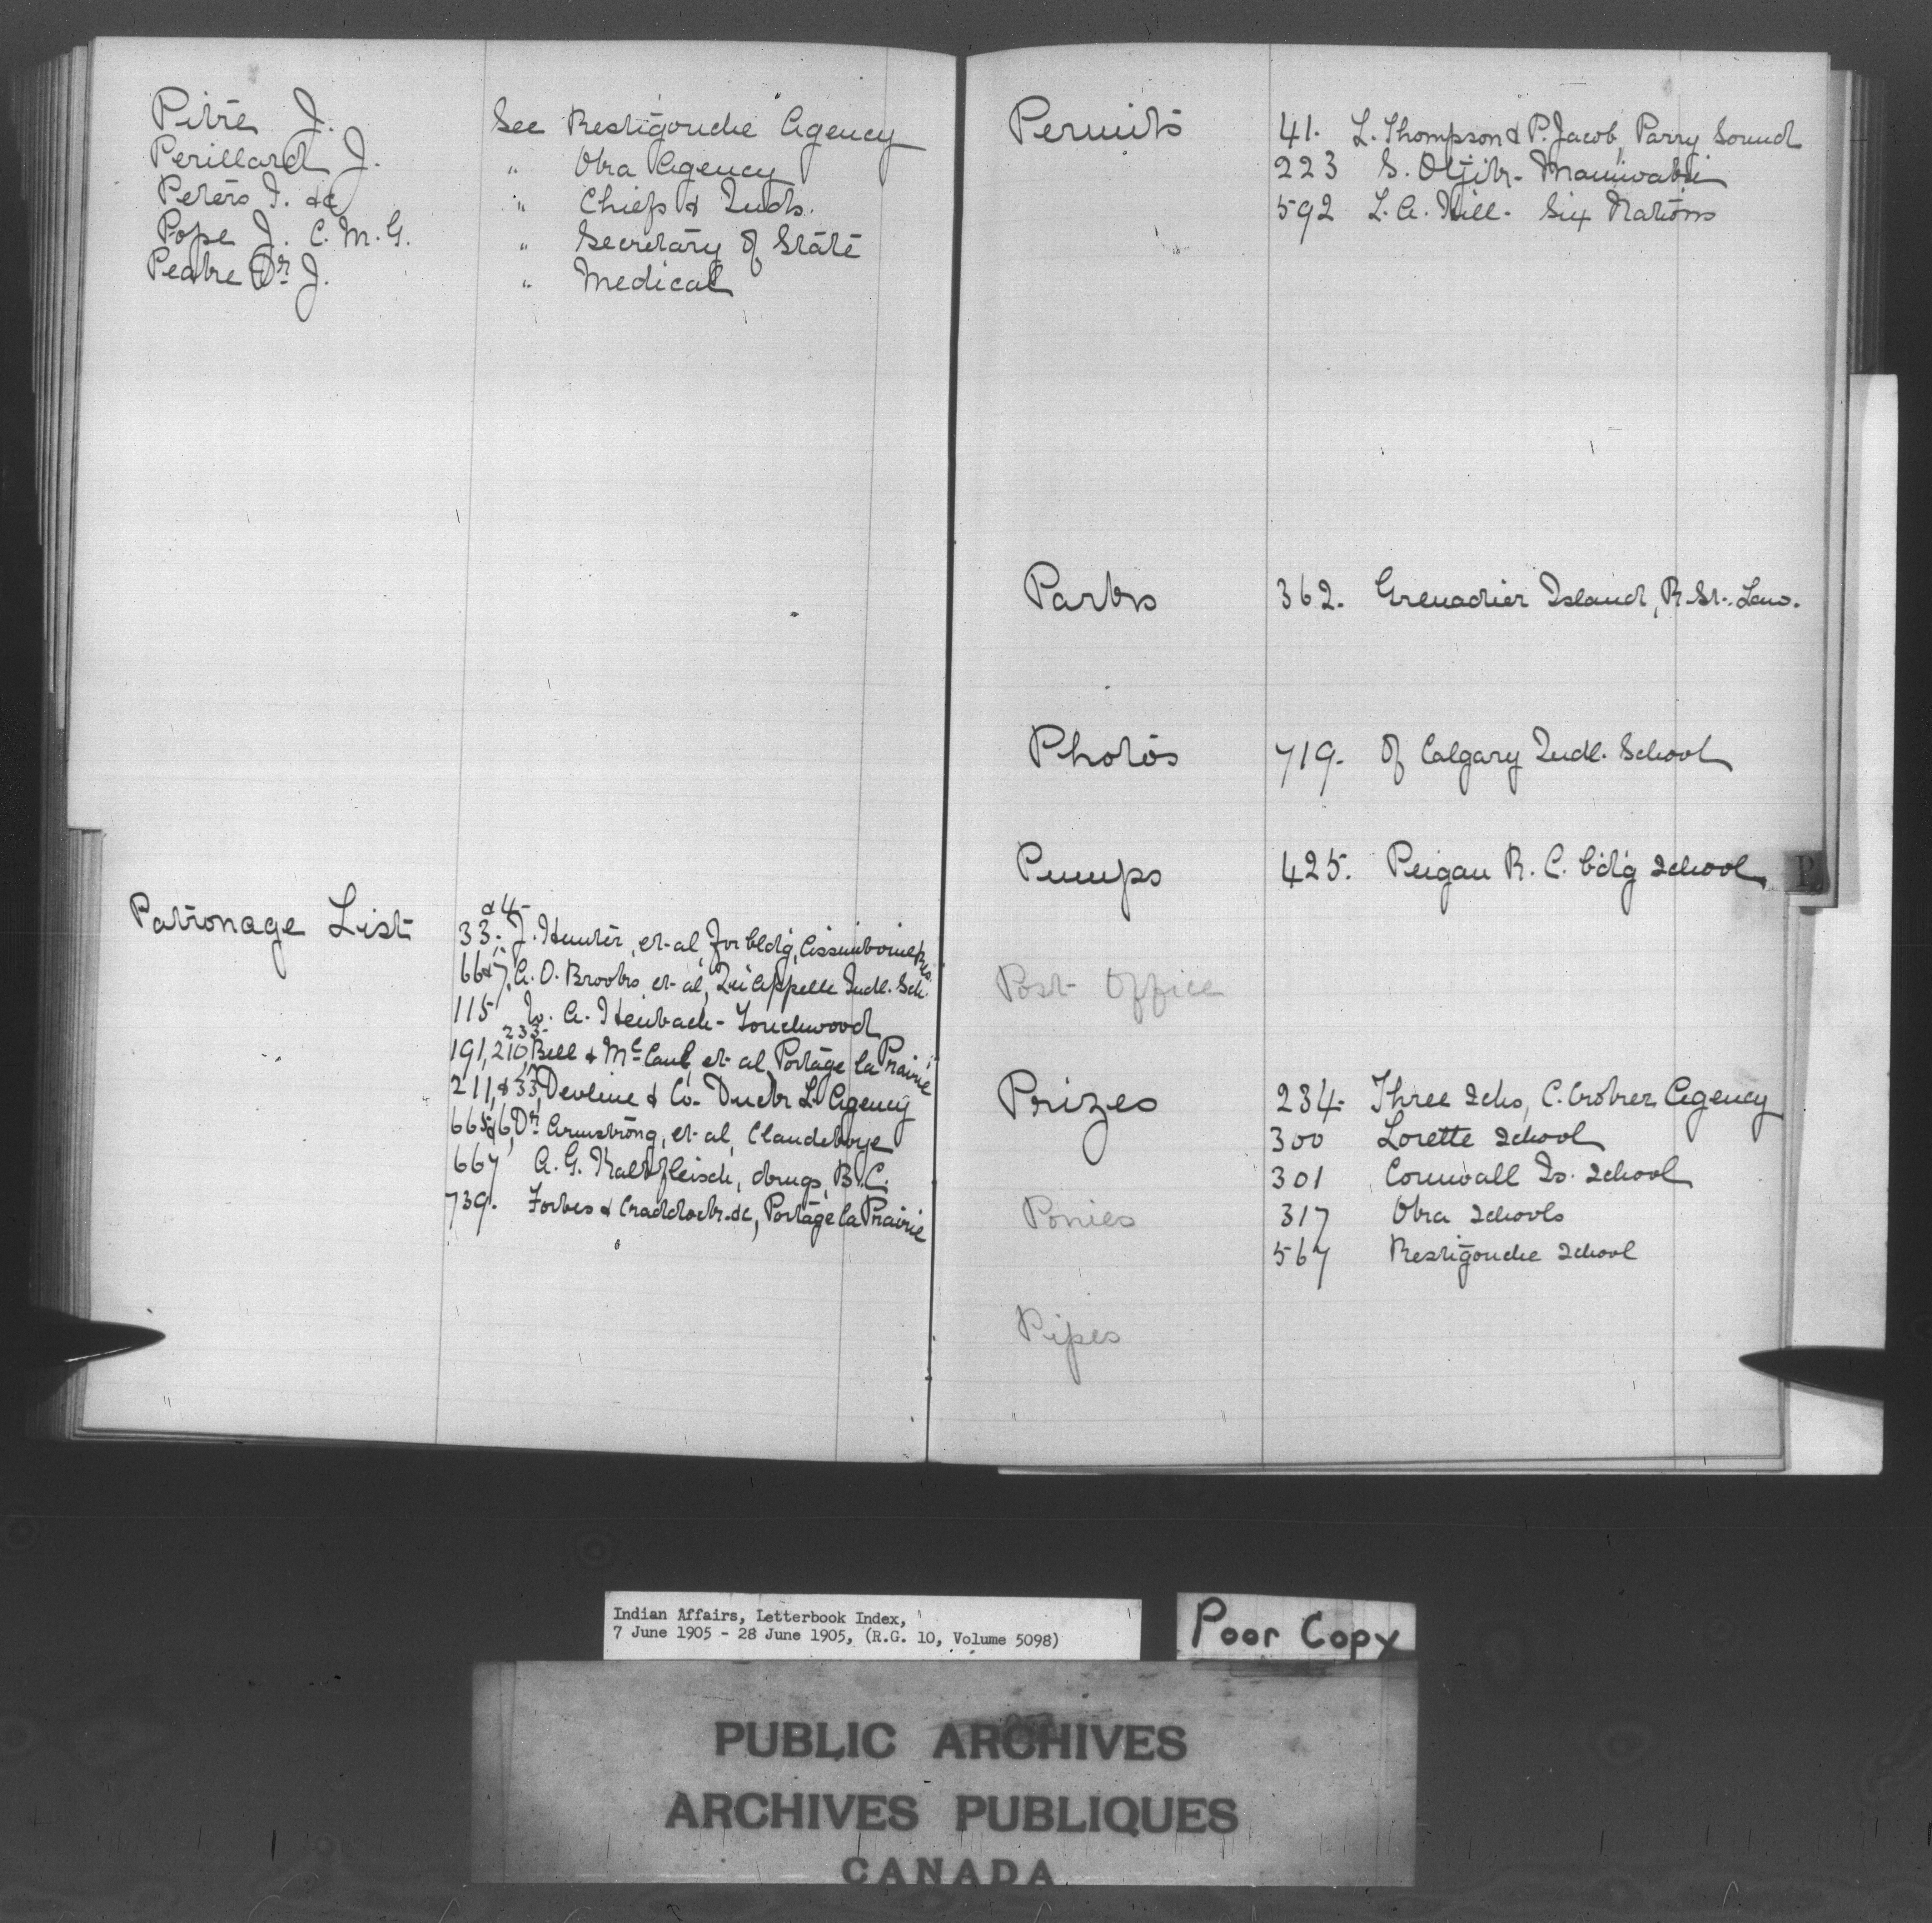 Pitre J. See Restigouche Agency
Perillard J. " Oka Agency
Peters I. &c " Chiefs & Inds.
Pope J. C.M.G. " Secretary of State
Peake Dr. J. " Medical
Patronage List
33 & 4. J. Hunter, et al, for bldg, Assiniboine Res.
66 & 7. A. O. Brooks et al, Qu'Appelle Indl. Sch.
115 A. Heubach - Touchwood
191, 210, 233 Bell & McCaul, et al, Portage la Prairie
211, & 33, Devline & Co. Duck L. Agency
665 & 6, Dr. Armstrong, et al, Clandeboye
667 A. G. Kalbfleisch, drugs, B.C.
739. Forbes & Craddock &c, Portage la Prairie
Permits 41. L. Thompson & P. Jacob, Parry Sound
223 S. Odjik - Maniwaki
592 L. A. Hill - Six Nations
Parks 362. Grenadier Island, R. St. Law.
Photos 719. Of Calgary Indl. School
Pumps 425. Peigan R. C. bdg School
P
Post Office
Prizes 234. Three Schs, C. Croker Agency
300 Lorette School
301 Cornwall Is. School
Ponies 317 Oka Schools
567 Restigouche School
Pipes
Indian Affairs, Letterbook Index,
7 June 1905 - 28 June 1905, (R.G. 10, Volume 5098)
Poor Copy
PUBLIC ARCHIVES
ARCHIVES PUBLIQUES
CANADA